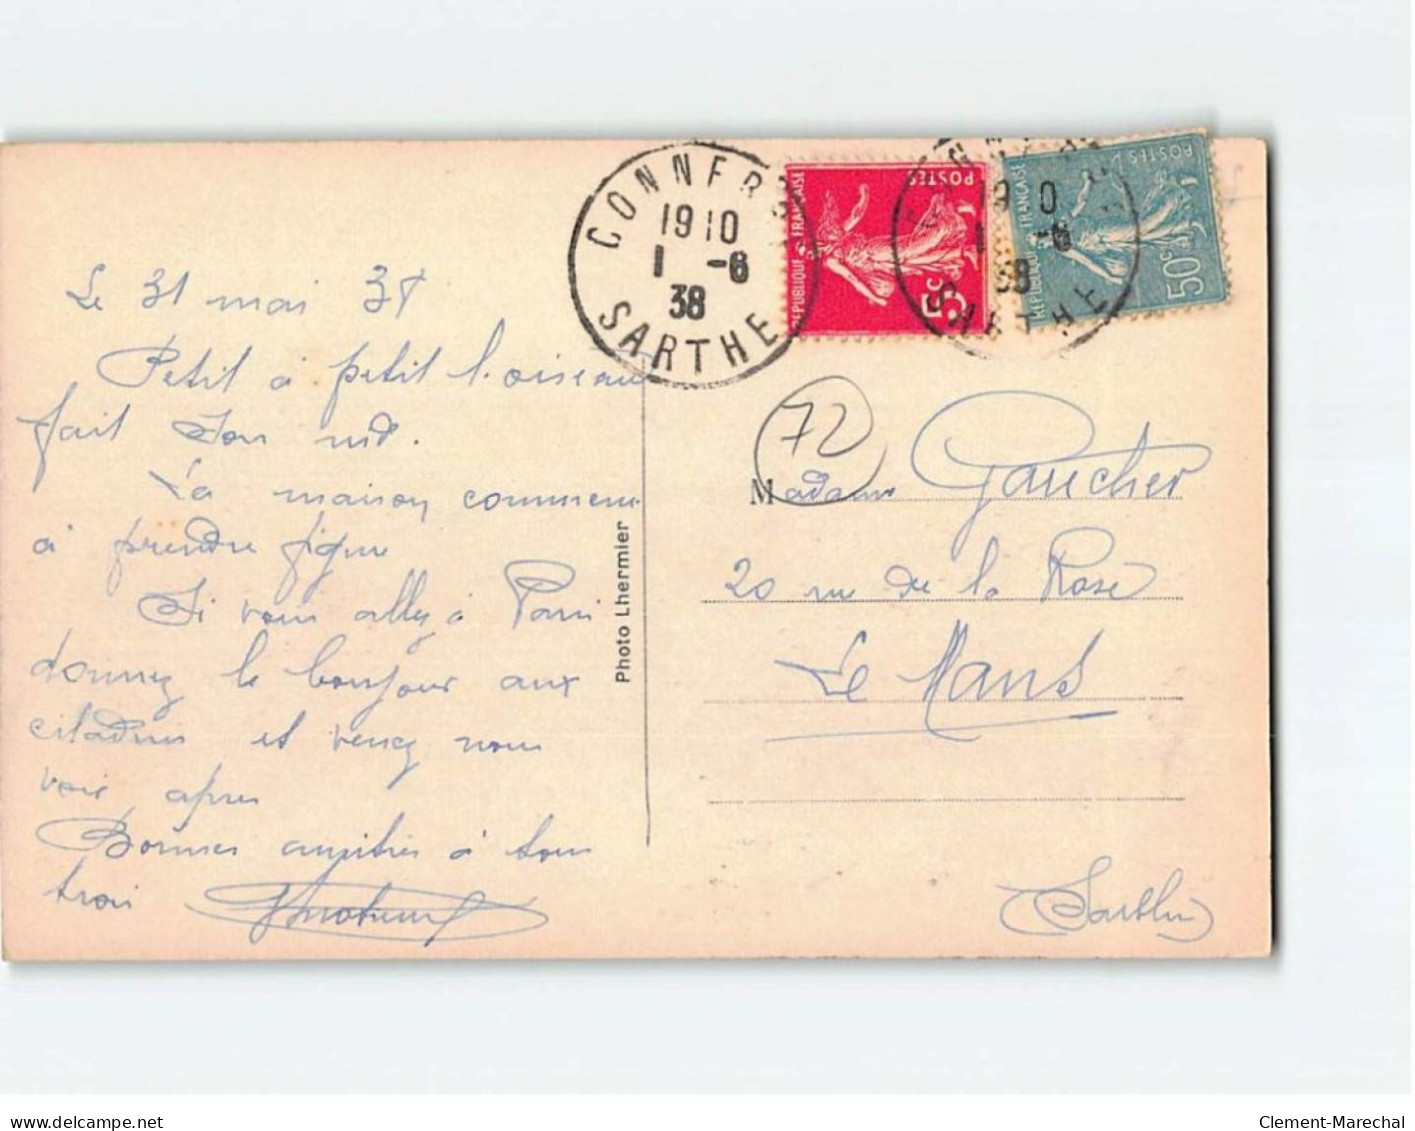 CONNERRÉ
19 10
1 -6
38
SARTHE
POSTES
REPUBLIQUE FRANÇAISE
5c
19 10
1 -6
38
SARTHE
POSTES
REPUBLIQUE FRANÇAISE
50c
Le 31 mai 38
Petit à petit l'oiseau
fait son nid.
La maison commence
à prendre figure
Si vous allez à Paris
donnez le bonjour aux
citadins et venez nous
voir apres
Bonnes amitiés à tous
trois
Photo Lhermier
72
Madame Gaucher
20 rue de la Rose
Le Mans
(Sarthe)
delcampe.net
Clement-Marechal